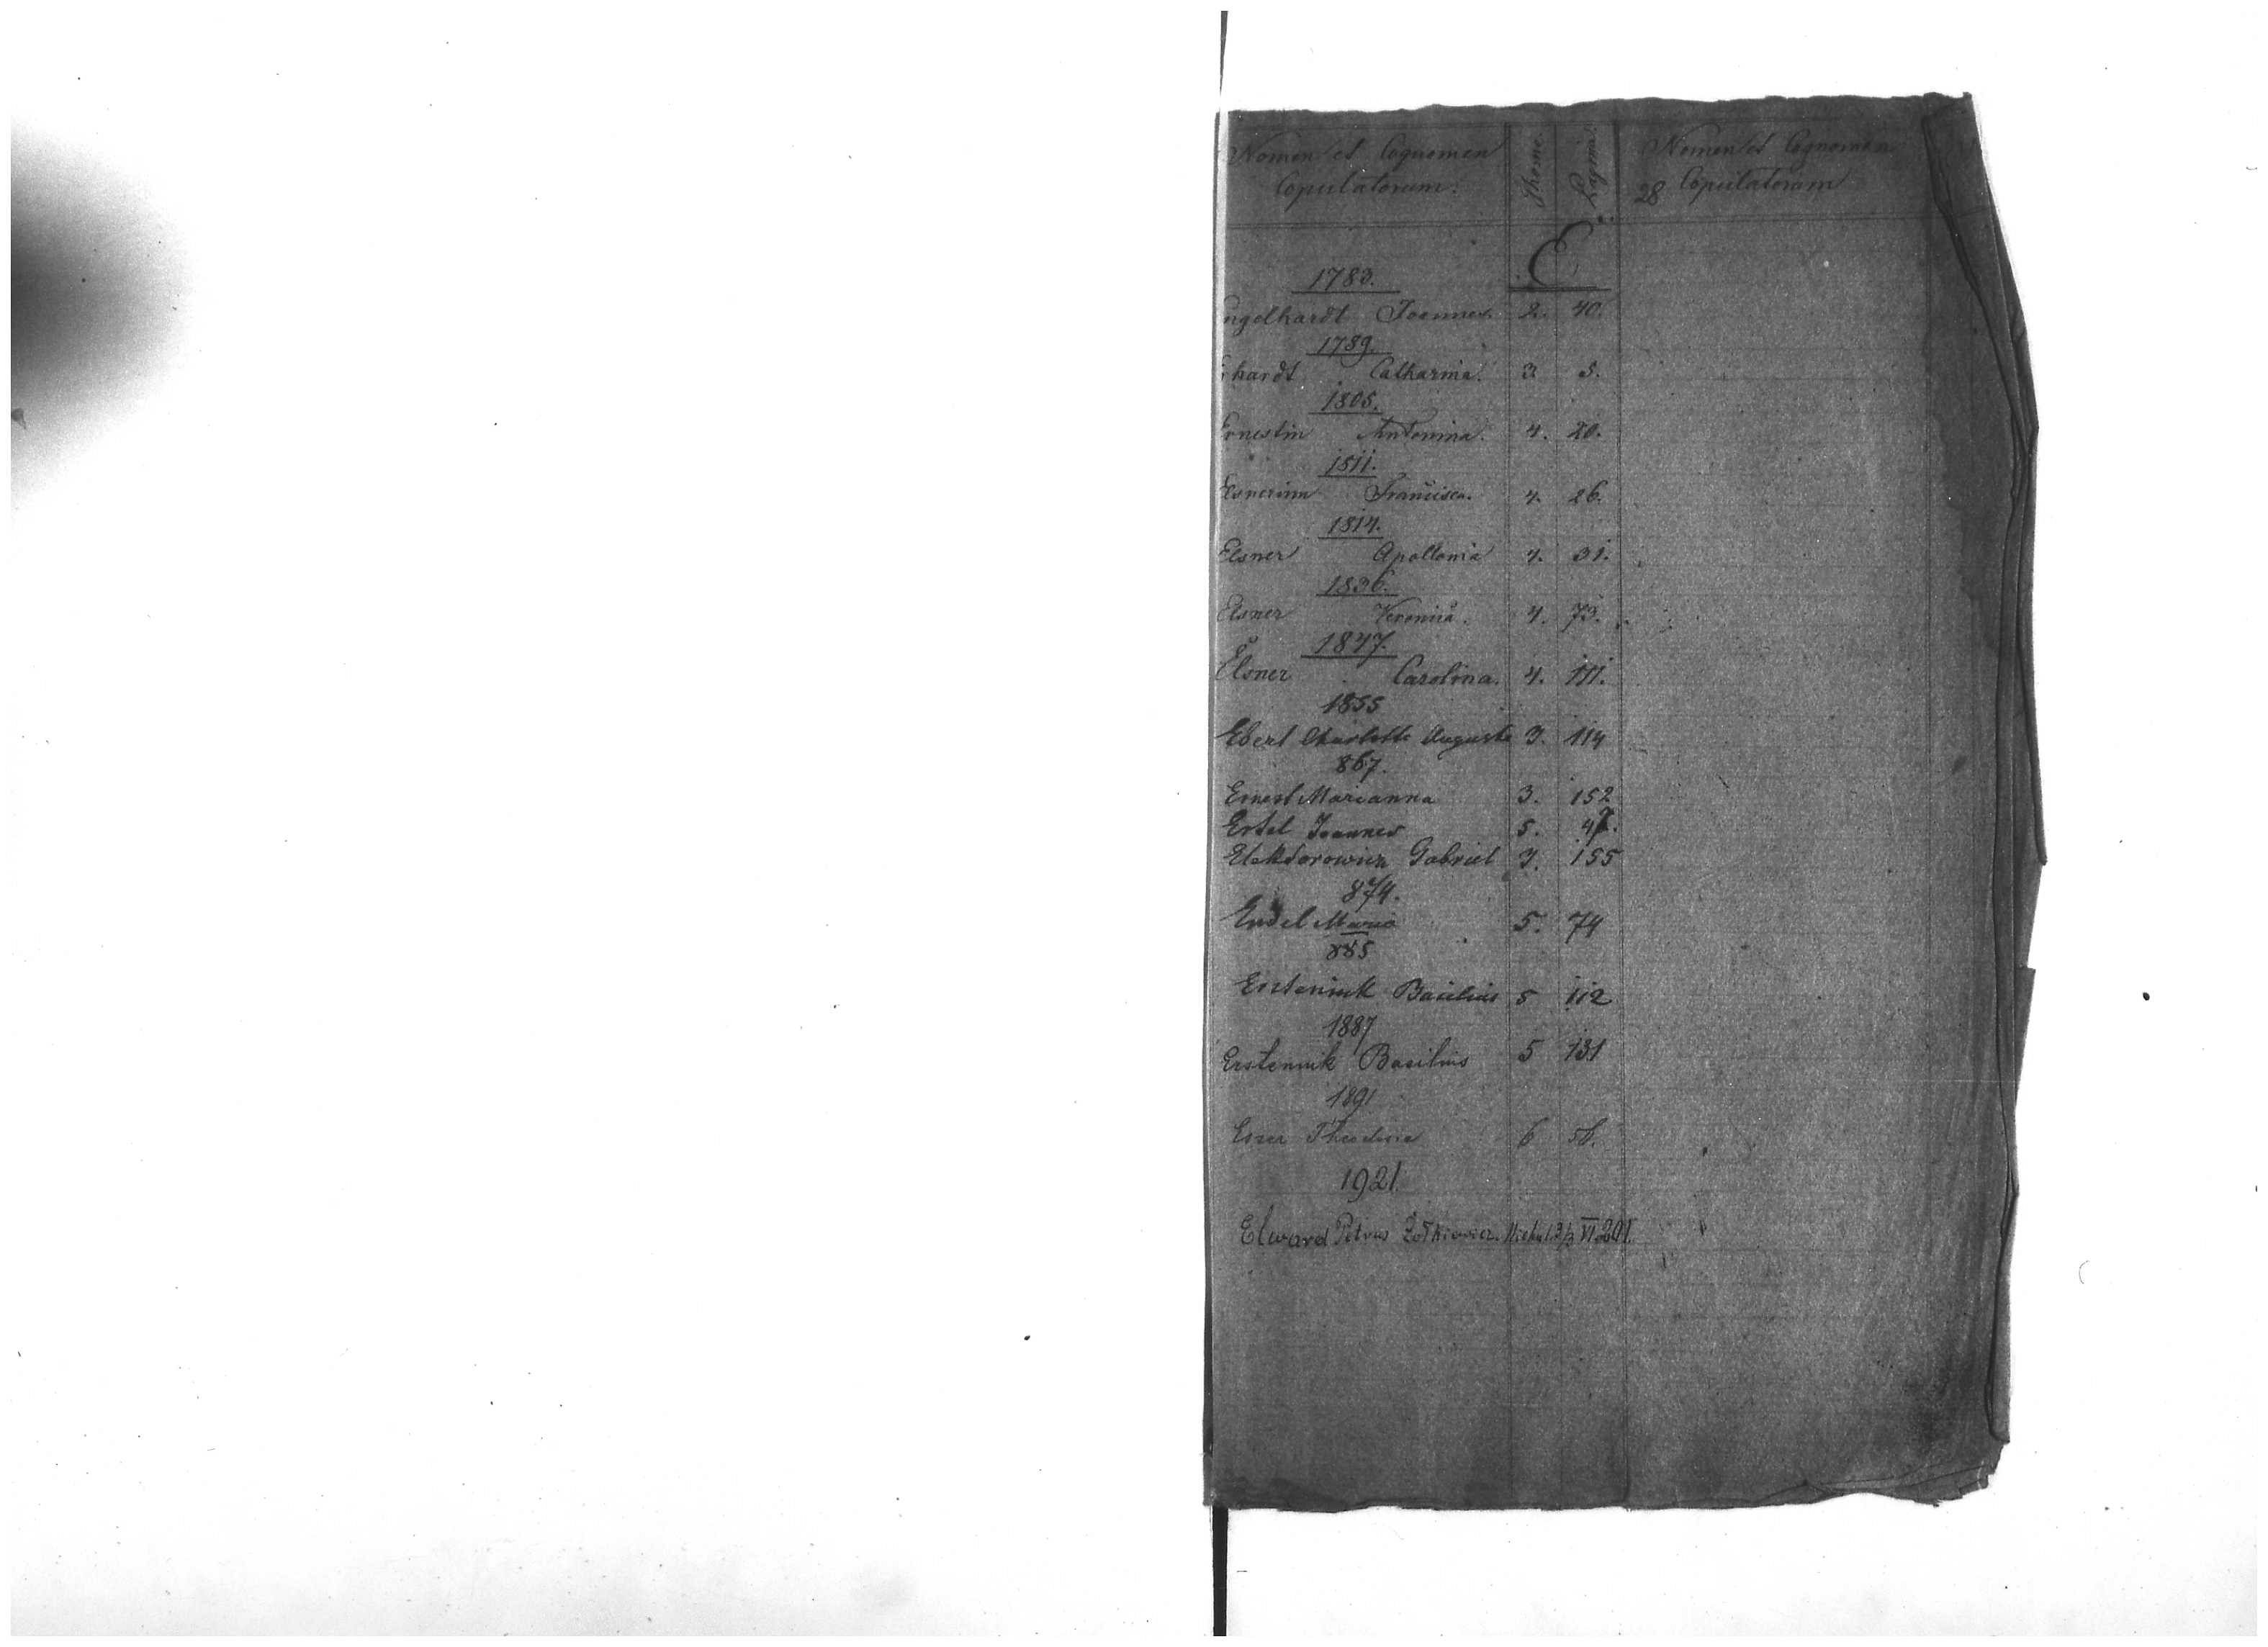 Nomen et Cognomen Copulatorum. Thome Pagina. Nomen et Cognomen
28 Copulatorum
E
1783.
ngelhardt Joannes. 2. 40.
1789.
rhardt Catharina. 3. 5.
1805.
Ernestin Antonina. 4. 20.
1811.
Elsnerinn Francisca. 4. 26.
1814.
Elsner Apollonia 4. 31.
1836.
Elsner Veronica. 4. 73.
1847.
Elsner Carolina. 4. 111.
1855
Ebert Charlotte Auguste 3. 114
867.
Ernest Marianna 3. 152
Ertel Joannes 5.
Elektorowicz Gabriel 3. 155
874.
Endel Maria 5. 74
885
Ersteniuk Basilius 5 112
1887
Ersteniuk Basilius 5 131
1891
Theodora 6 56.
1921.
Edward Petrus Żółkiewicz. VI 201.